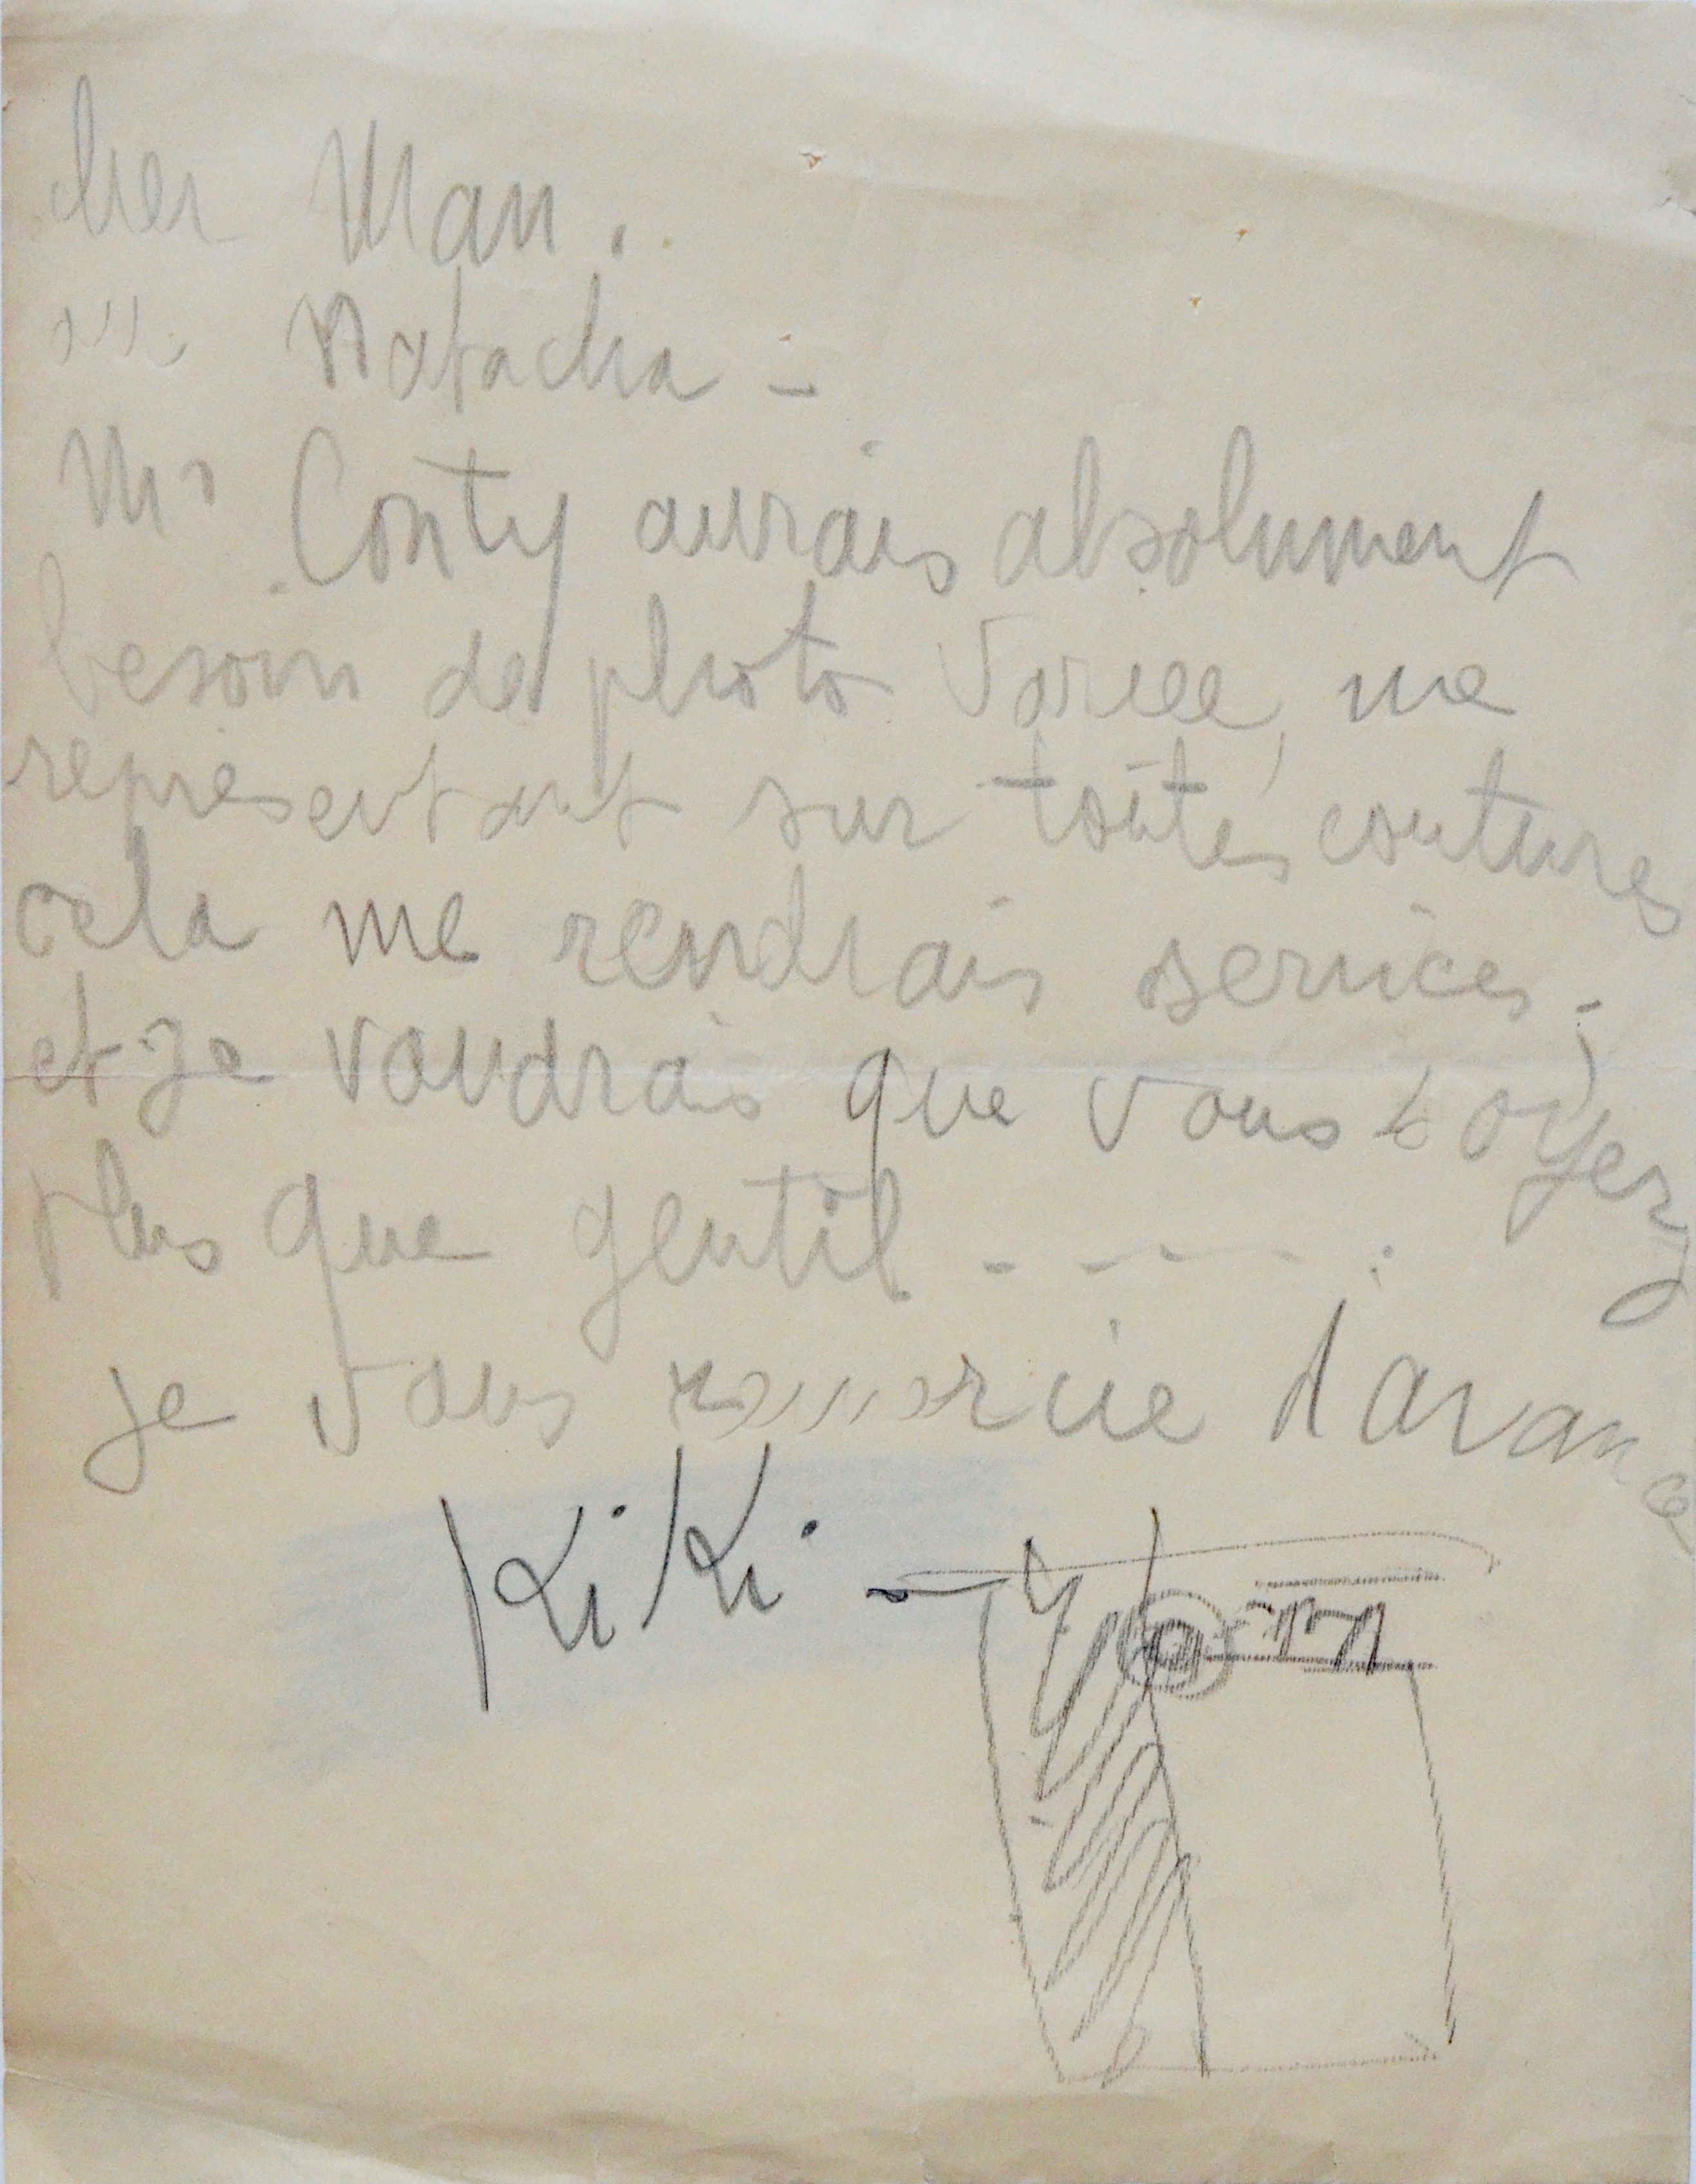 cher Man.
Natacha -
Mr Conty aurais absolument
besoin de photo variée, me
representant sur toutes coutures
cela me rendrais services.
et je voudrais que vous soyez
plus que gentil - - - - .
je vous remercie d'avance
KiKi.